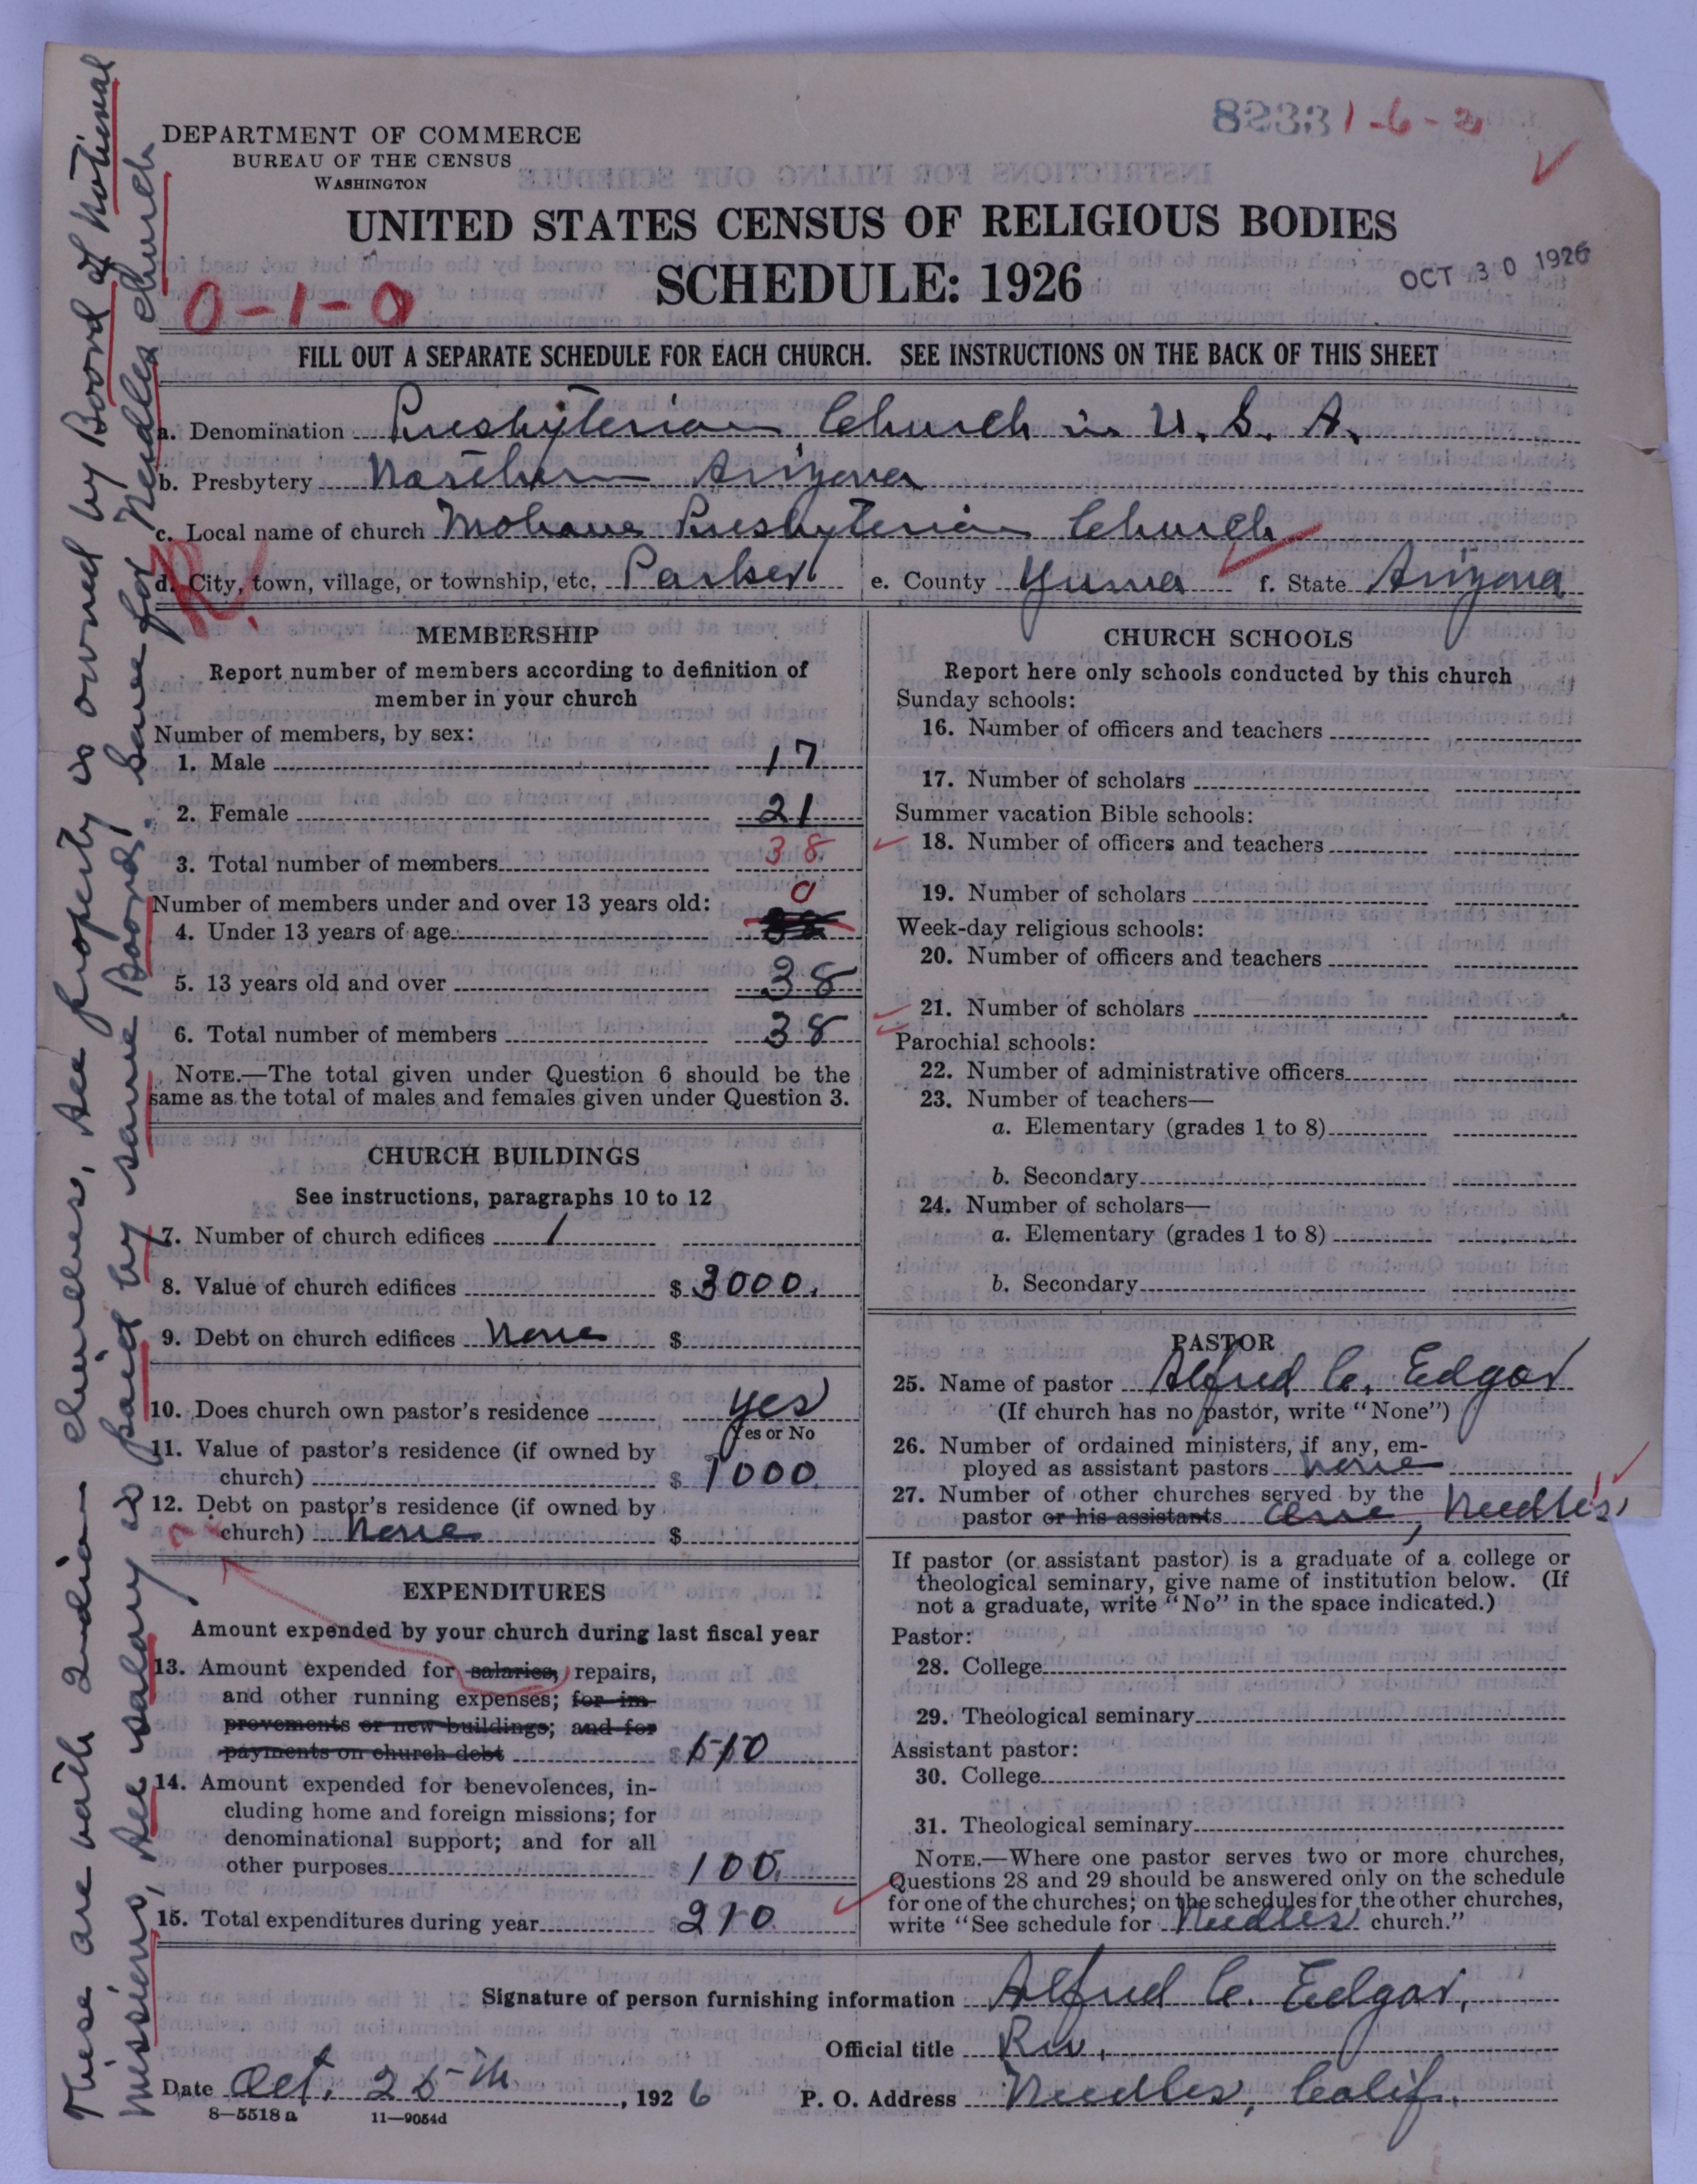 These are both Indian churches. All property is owned by Board of National
Missions, All salary is paid by same Board. Same for Needles Church
82331-6-2
DEPARTMENT OF COMMERCE
BUREAU OF THE CENSUS
WASHINGTON
UNITED STATES CENSUS OF RELIGIOUS BODIES
SCHEDULE: 1926
OCT 30 1926
0-1-0
FILL OUT A SEPARATE SCHEDULE FOR EACH CHURCH. SEE INSTRUCTIONS ON THE BACK OF THIS SHEET
a. Denomination Presbyterian Church in U. S. A.
b. Presbytery Northern Arizona
c. Local name of church Mohave Presbyterian Church
R.
d. City, town, village, or township, etc. Parker e. County Yuma f. State Arizona
MEMBERSHIP
Report number of members according to definition of
member in your church
Number of members, by sex:
1. Male 17
2. Female 21
3. Total number of members 38
Number of members under and over 13 years old:
4. Under 13 years of age 0
5. 13 years old and over 38
6. Total number of members 38
NOTE.—The total given under Question 6 should be the
same as the total of males and females given under Question 3.
CHURCH BUILDINGS
See instructions, paragraphs 10 to 12
7. Number of church edifices 1
8. Value of church edifices $ 3000.
9. Debt on church edifices None $
10. Does church own pastor's residence yes
Yes or No
11. Value of pastor's residence (if owned by
church) $ 1000.
12. Debt on pastor's residence (if owned by
church) None $
EXPENDITURES
Amount expended by your church during last fiscal year
13. Amount expended for salaries, repairs,
and other running expenses; for im-
provements or new buildings; and for
payments on church debt $ 110
14. Amount expended for benevolences, in-
cluding home and foreign missions; for
denominational support; and for all
other purposes $ 100.
15. Total expenditures during year $ 210.
CHURCH SCHOOLS
Report here only schools conducted by this church
Sunday schools:
16. Number of officers and teachers
17. Number of scholars
Summer vacation Bible schools:
18. Number of officers and teachers
19. Number of scholars
Week-day religious schools:
20. Number of officers and teachers
21. Number of scholars
Parochial schools:
22. Number of administrative officers
23. Number of teachers—
a. Elementary (grades 1 to 8)
b. Secondary
24. Number of scholars—
a. Elementary (grades 1 to 8)
b. Secondary
PASTOR
25. Name of pastor Alfred C. Edgar
(If church has no pastor, write "None")
26. Number of ordained ministers, if any, em-
ployed as assistant pastors None
27. Number of other churches served by the
pastor or his assistants One, Needles
If pastor (or assistant pastor) is a graduate of a college or
theological seminary, give name of institution below. (If
not a graduate, write "No" in the space indicated.)
Pastor:
28. College
29. Theological seminary
Assistant pastor:
30. College
31. Theological seminary
NOTE.—Where one pastor serves two or more churches,
Questions 28 and 29 should be answered only on the schedule
for one of the churches; on the schedules for the other churches,
write "See schedule for Needles church."
Signature of person furnishing information Alfred C. Edgar,
Official title Rev.
Date Oct. 25th, 1926 P. O. Address Needles, Calif.
8—5518 a 11—9054d